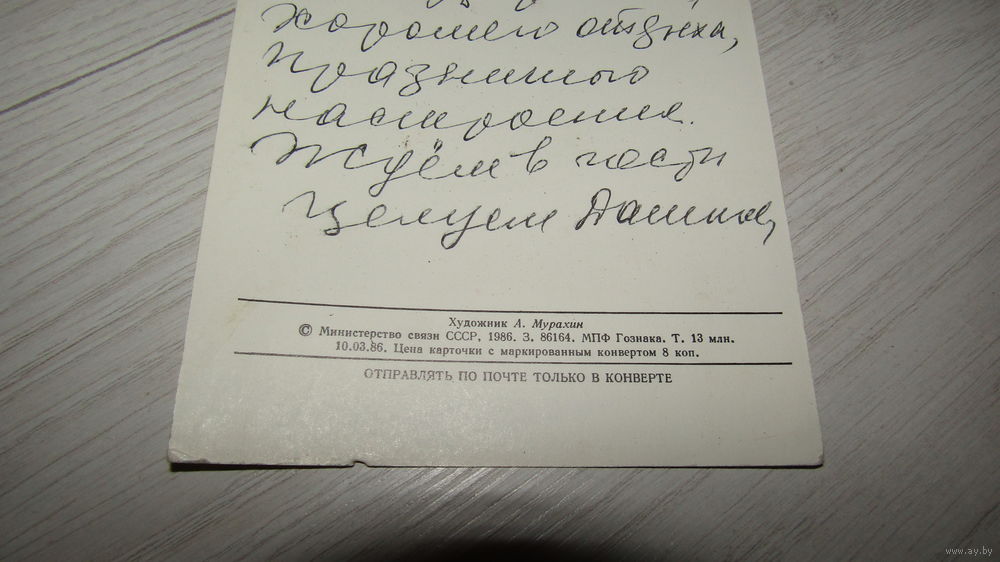 хорошего отдыха,
праздничного
настроения.
Ждём в гости
Целуем
Художник А. Мурахин
© Министерство связи СССР, 1986. З. 86164. МПФ Гознака. Т. 13 млн.
10.03.86. Цена карточки с маркированным конвертом 8 коп.
ОТПРАВЛЯТЬ ПО ПОЧТЕ ТОЛЬКО В КОНВЕРТЕ
www.ay.by